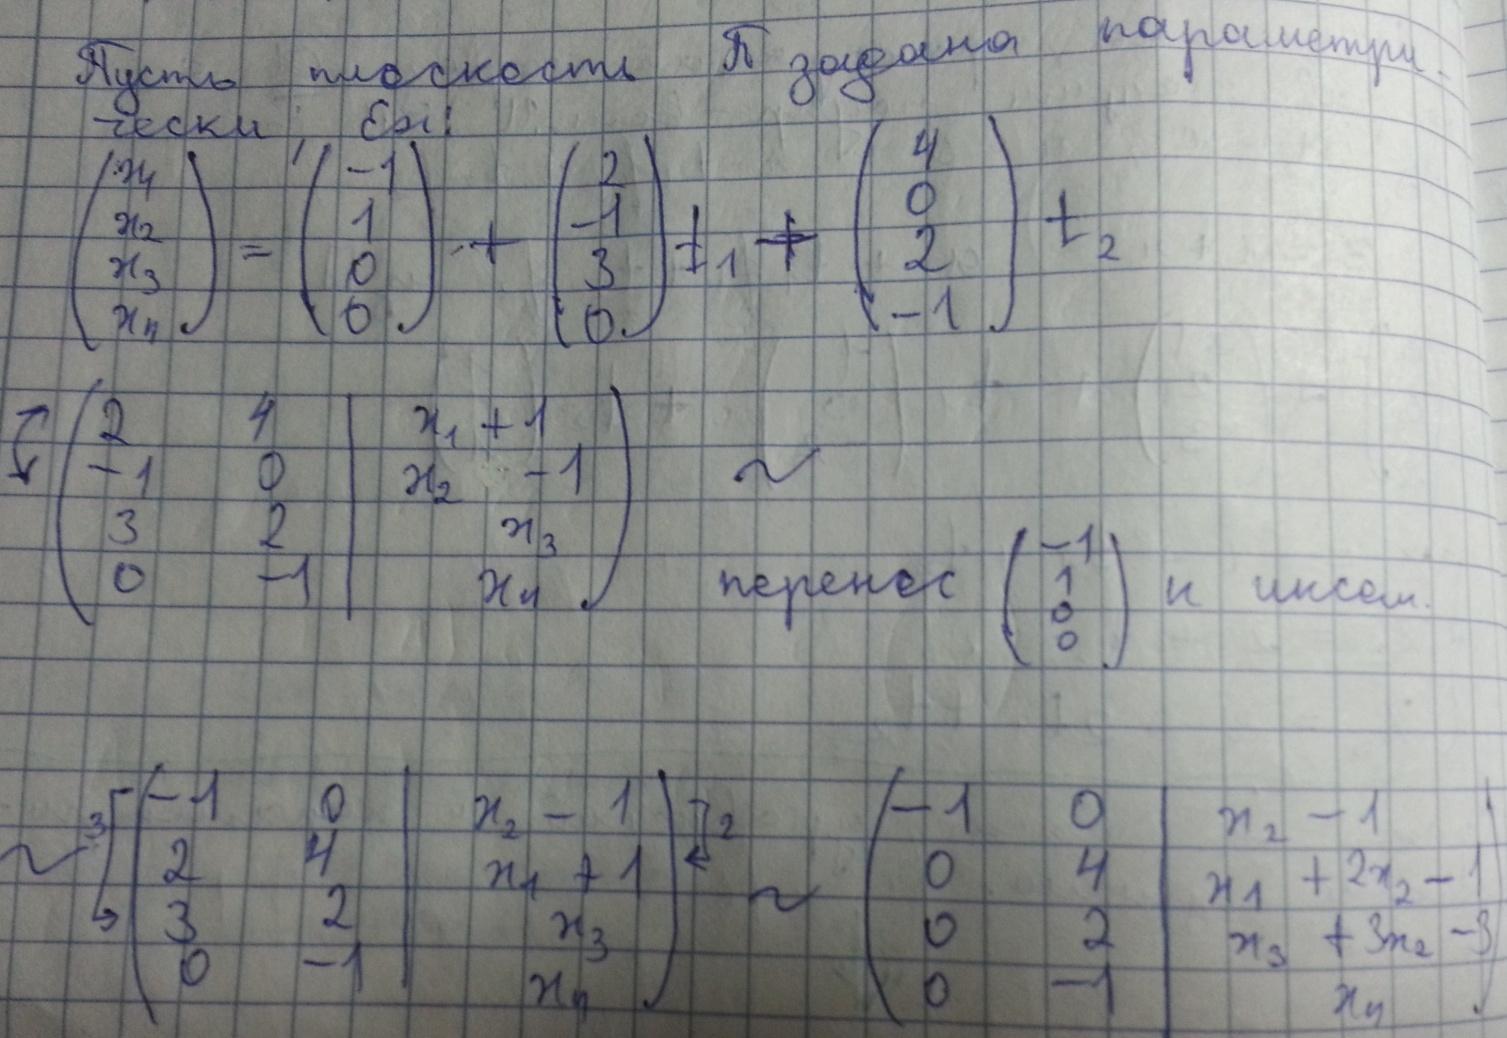 Пусть плоскость П задана параметри-
чески
(x₁ x₂ x₃ x₄) = (-1 1 0 0) + (2 -1 3 0) t₁ + (4 0 2 -1) t₂
2 4 | x₁ + 1
-1 0 | x₂ - 1 ~
3 2 | x₃
0 -1 | x₄
перенес (-1 1 0 0) к иксам.
-1 0 | x₂ - 1
2 4 | x₁ + 1
3 2 | x₃
0 -1 | x₄
3
2
~
~
-1 0 | x₂ - 1
0 4 | x₁ + 2x₂ - 1
0 2 | x₃ + 3x₂ - 3
0 -1 | x₄